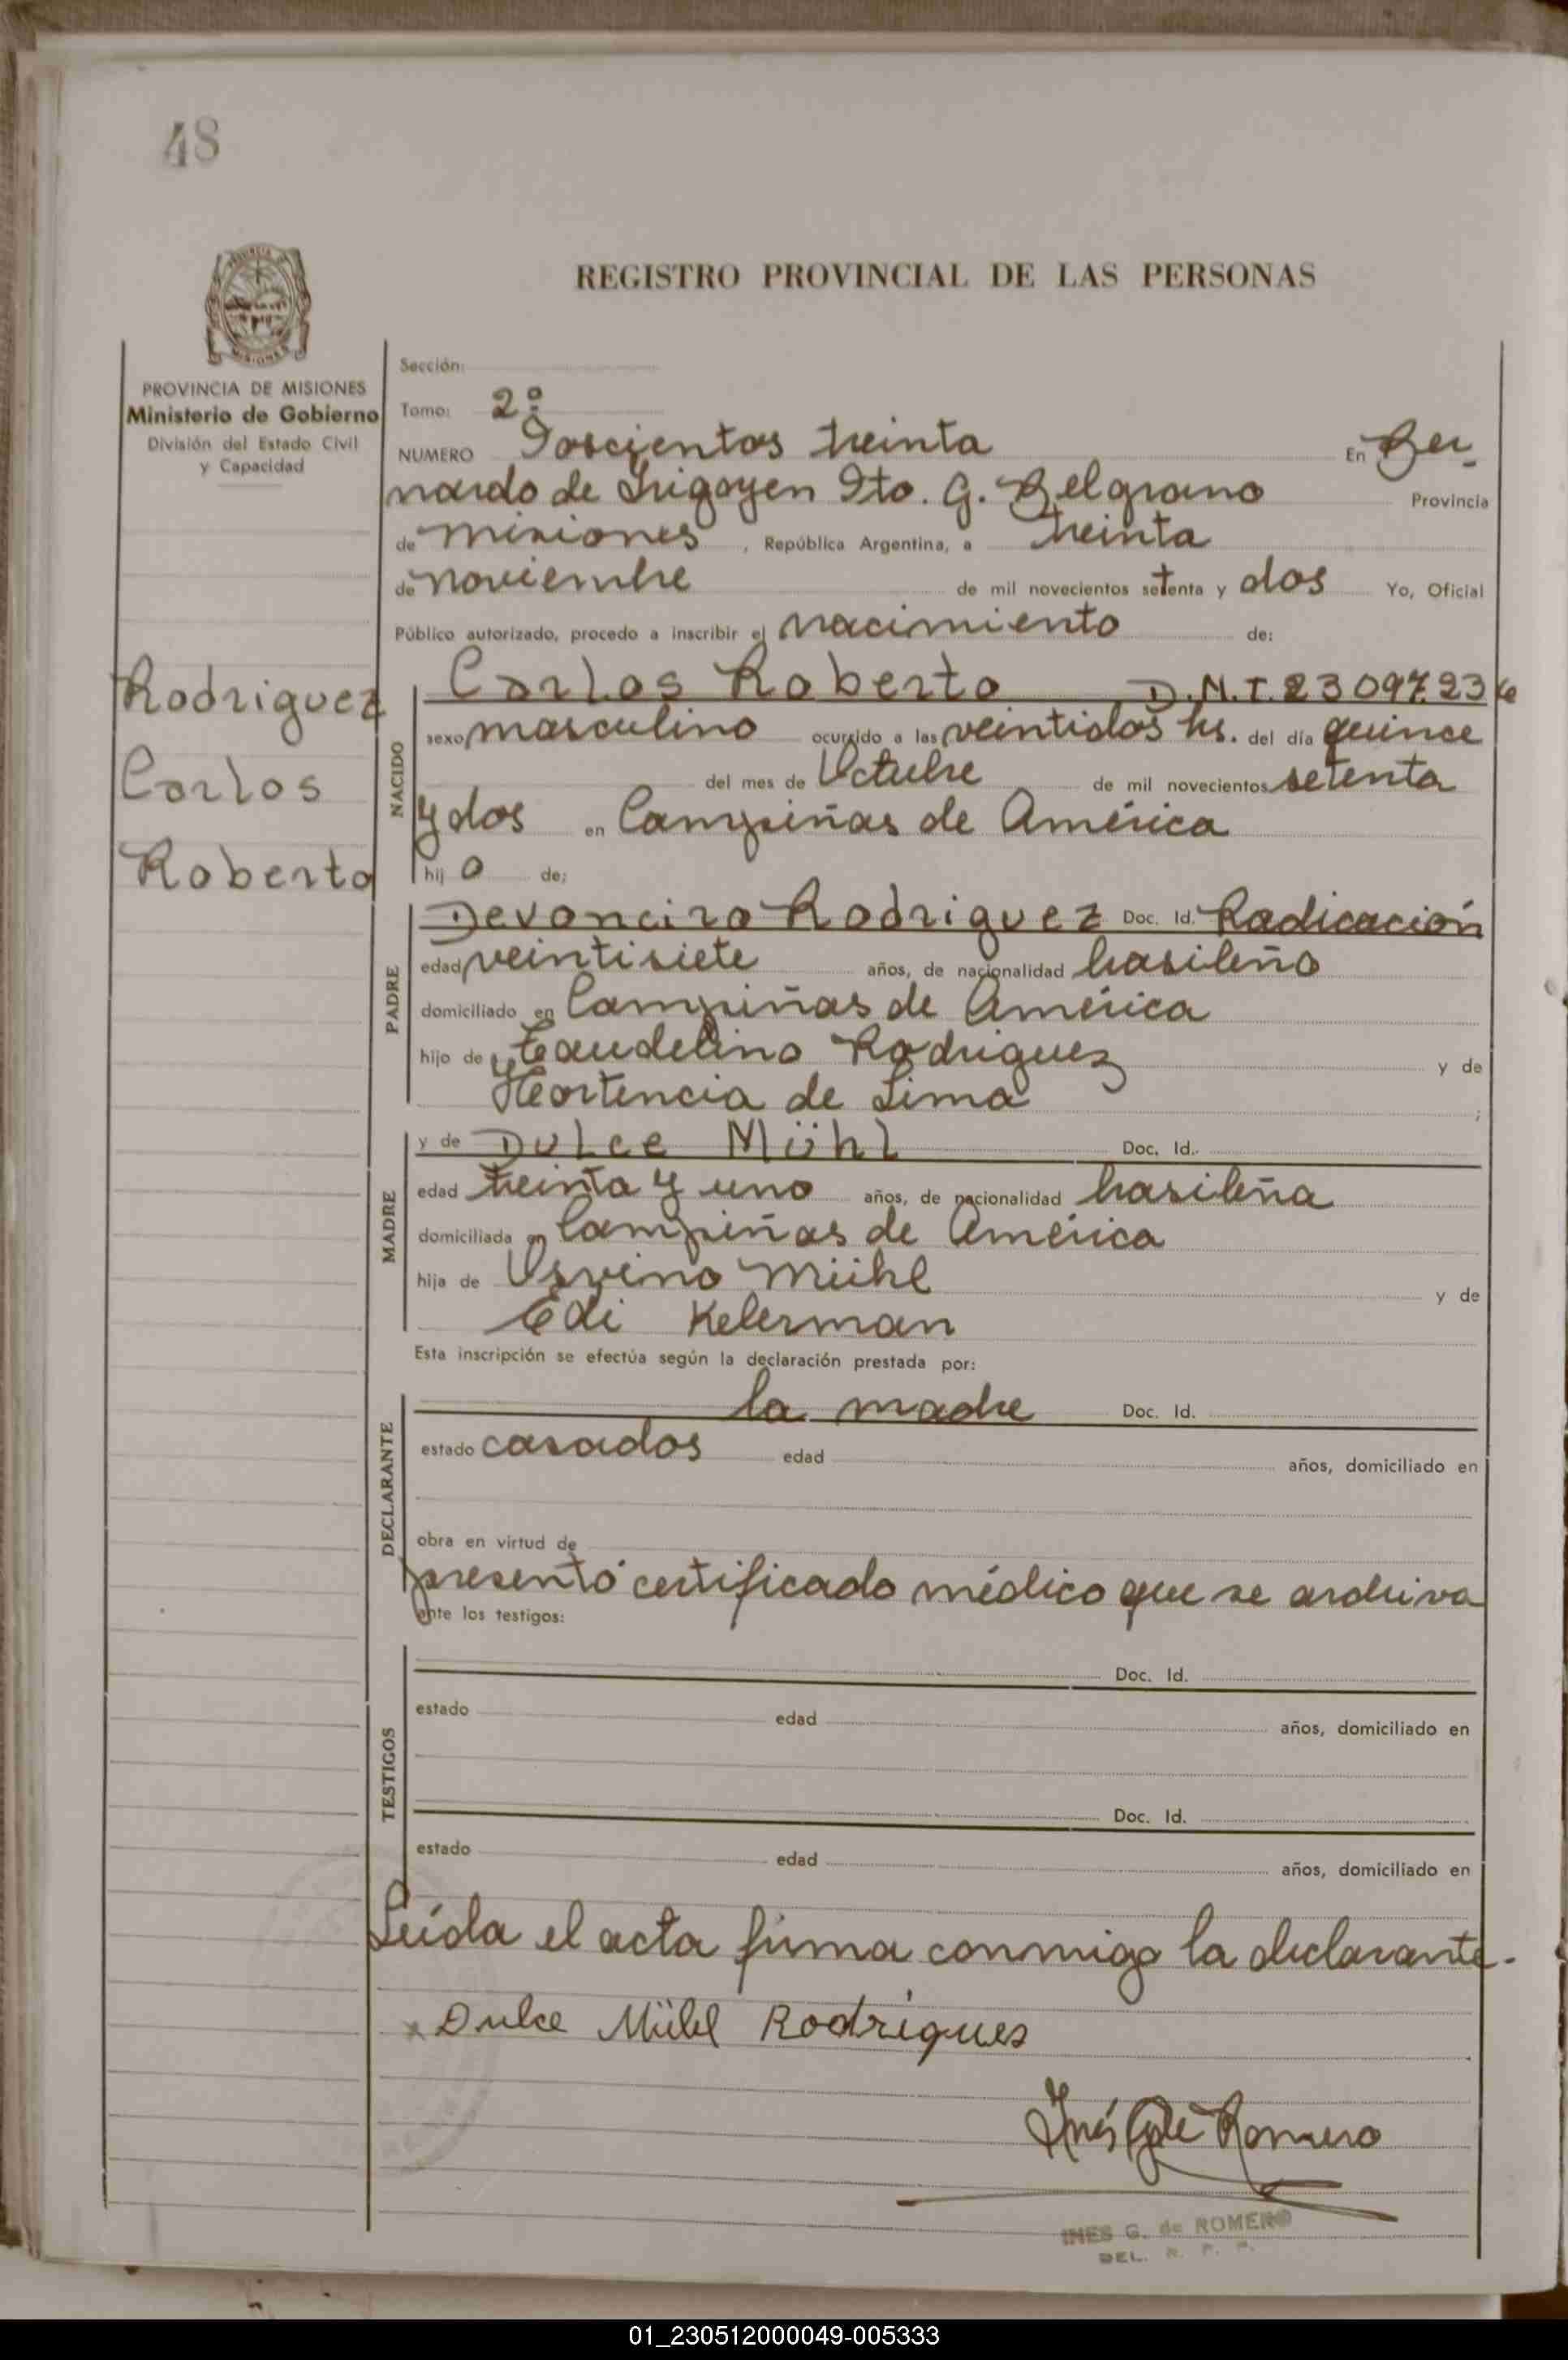 48
REGISTRO PROVINCIAL DE LAS PERSONAS
PROVINCIA DE MISIONES
Ministerio de Gobierno
División del Estado Civil
y Capacidad
Sección:
Tomo: 2º
NUMERO Doscientos treinta En Ber
nardo de Irigoyen Dto. G. Belgrano Provincia
de Misiones, República Argentina, a treinta
de noviembre de mil novecientos setenta y dos Yo, Oficial
Público autorizado, procedo a inscribir el nacimiento de:
Rodriguez
Carlos
Roberto
NACIDO
Carlos Roberto D.N.I. 23097.23
sexo masculino ocurrido a las veintidos hs. del día quince
del mes de Octubre de mil novecientos setenta
y dos en Campiñas de América
hijo de:
PADRE
Devanciro Rodriguez Doc. Id. Radicación
edad veintisiete años, de nacionalidad brasileño
domiciliado en Campiñas de América
hijo de Rodriguez y de
Hortencia de Lima
MADRE
y de Dulce Mühl Doc. Id.
edad treinta y uno años, de nacionalidad brasileña
domiciliada en Campiñas de América
hija de Osvino Mühl y de
Edi Kelerman
Esta inscripción se efectúa según la declaración prestada por:
DECLARANTE
la madre Doc. Id.
estado casados edad años, domiciliado en
obra en virtud de
presentó certificado médico que se archiva
ante los testigos:
TESTIGOS
Doc. Id.
estado edad años, domiciliado en
Doc. Id.
estado edad años, domiciliado en
Leída el acta firma conmigo la declarante.
x Dulce Mühl Rodrigues
Inés G de Romero
INES G. de ROMERO
DEL. R. P. P.
01_230512000049-005333